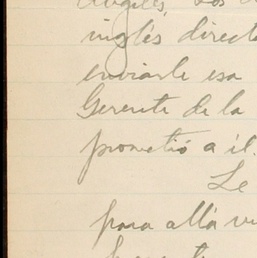 Angeles, Los
inglés direct
enviarle esa
Gerente de la
prometió a él.
Le
para allá v